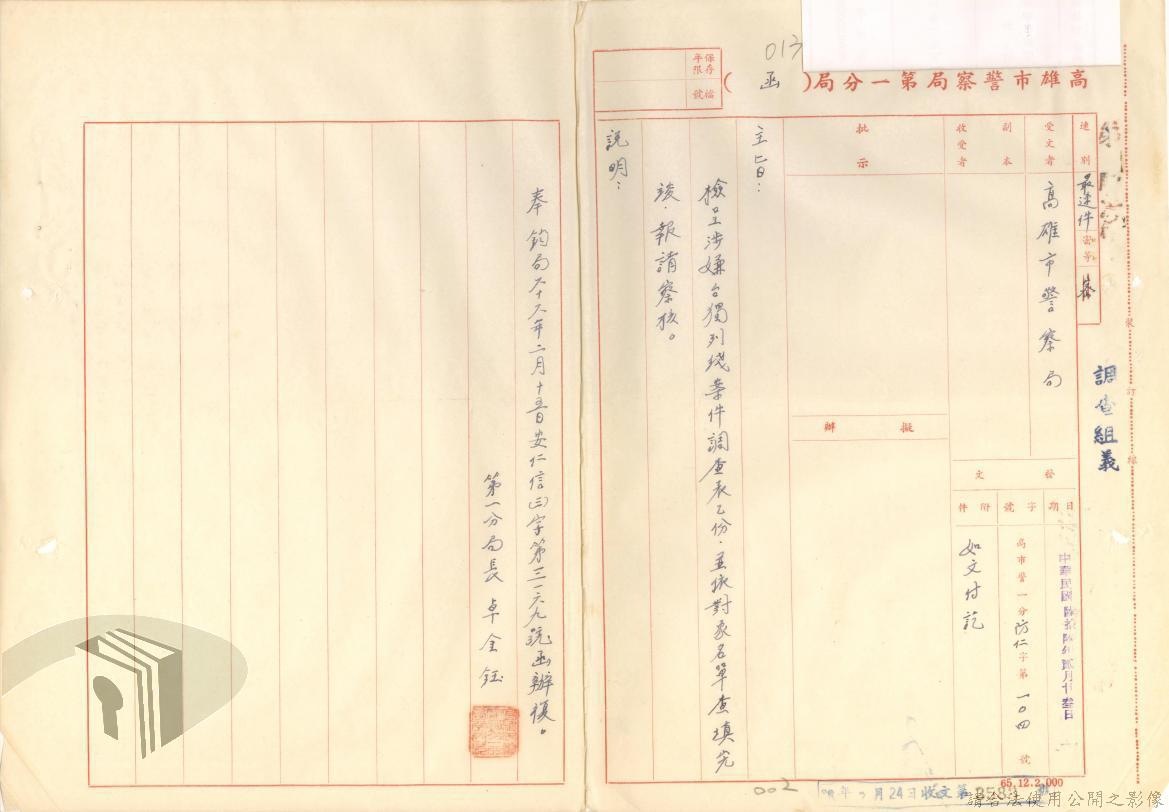 013
高雄市警察局第一分局(函)
保存年限
檔號
速別
最速件
密等
受文者
高雄市警察局
副本收受者
批示
擬辦
發文
日期
中華民國陸拾陸年貳月廿叁日
字號
高市警一分防仁字第一〇四號
附件
如文付訖
主旨：
檢呈涉嫌台獨列綫案件調查表乙份，並依對象名單查填完
竣，報請察核。
說明：
奉 鈞局六十六年二月十五日安仁信㈢字第三一六九號函辦復。
第一分局長 卓金鈺
調查組義
裝
訂
線
65.12.2,000
002
月24日收文第
請合法使用公開之影像